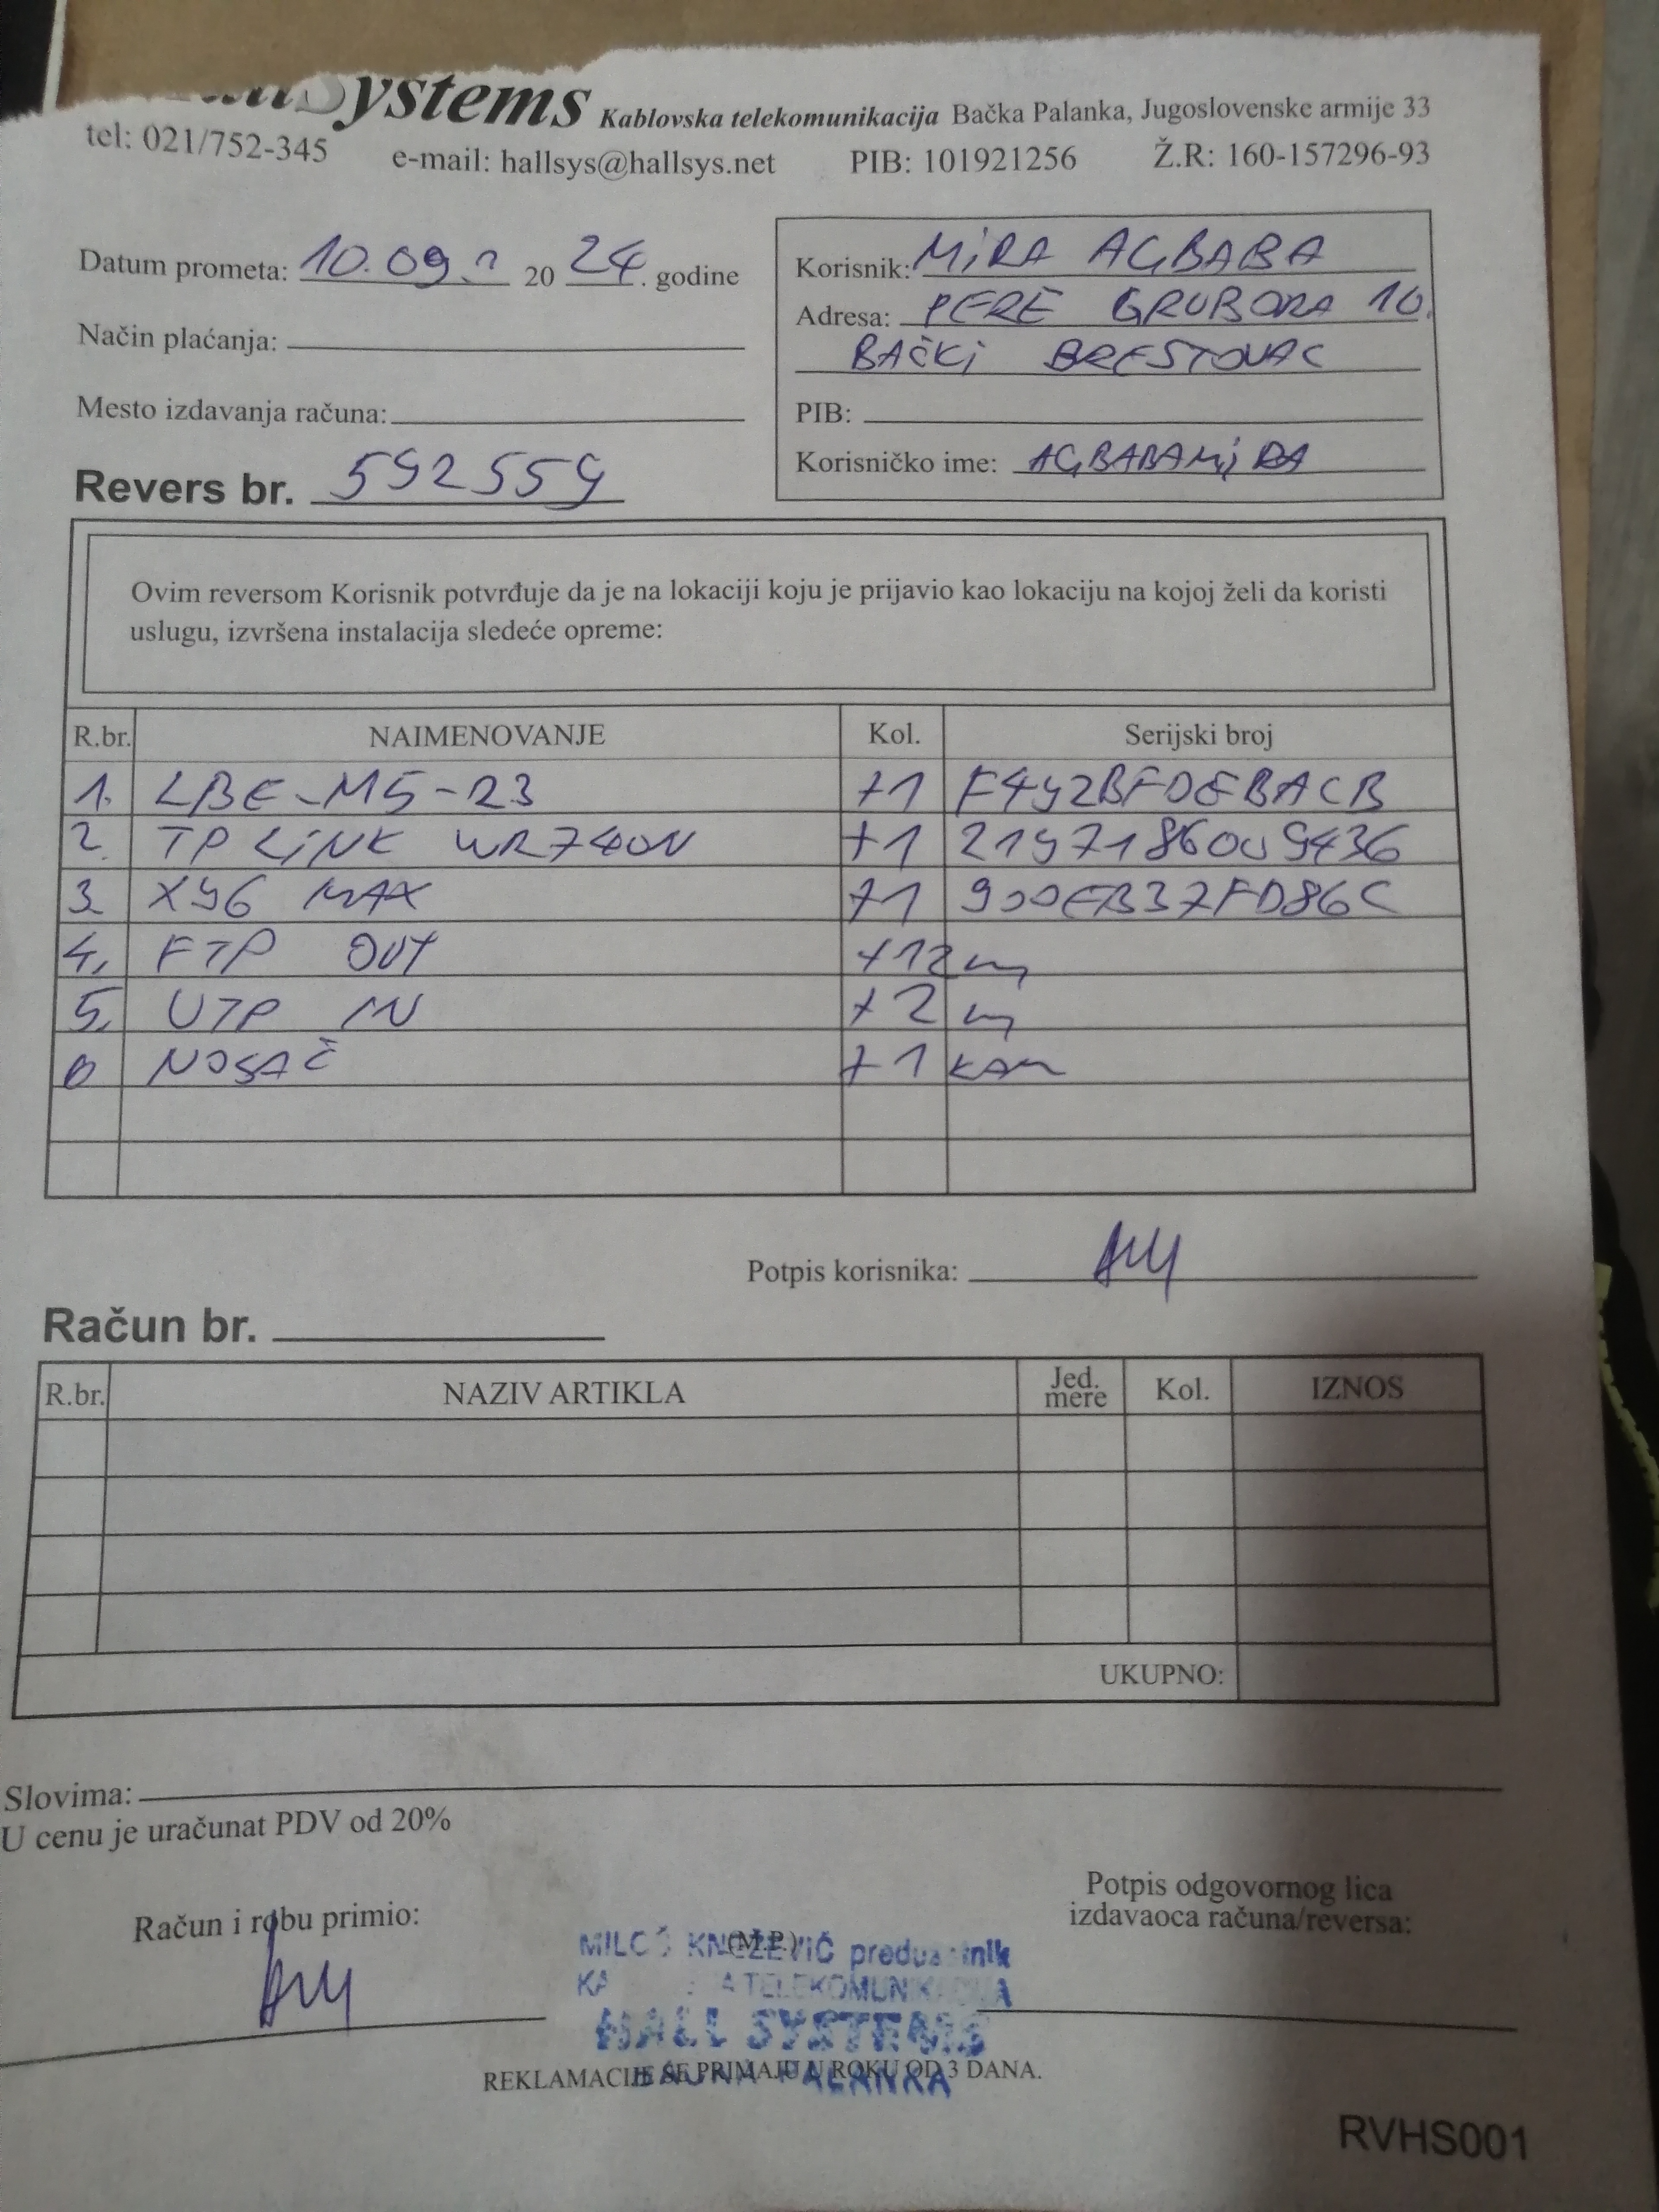 Systems Kablovska telekomunikacija Bačka Palanka, Jugoslovenske armije 33
tel: 021/752-345 e-mail: hallsys@hallsys.net PIB: 101921256 Ž.R: 160-157296-93
Datum prometa: 10.09. 20 24. godine
Korisnik: MiRA AGBABA
Adresa: PERE GRUBORA 10.
BAČKi BRESTOVAC
Način plaćanja:
Mesto izdavanja računa:
PIB:
Korisničko ime: AGBABAMiRA
Revers br. 592559
Ovim reversom Korisnik potvrđuje da je na lokaciji koju je prijavio kao lokaciju na kojoj želi da koristi
uslugu, izvršena instalacija sledeće opreme:
R.br. NAIMENOVANJE Kol. Serijski broj
1. LBE-M5-23 +1 F492BFDEBACB
2. TP LiNK WR740N +1 2197186009436
3. X96 MAX +1 900EB37FD86C
4. FTP OUT +12 m
5. UTP IN + 2 m
6 NOSAČ +1 KOM
Potpis korisnika:
Račun br.
R.br. NAZIV ARTIKLA Jed. mere Kol. IZNOS
UKUPNO:
Slovima:
U cenu je uračunat PDV od 20%
Račun i robu primio:
(M.P.)
Potpis odgovornog lica
izdavaoca računa/reversa:
MILOŠ KNEŽEVIĆ preduzetnik
TELEKOMUNIKACIJA
HALL SYSTEMS
BAČKA PALANKA
REKLAMACIJE SE PRIMAJU U ROKU OD 3 DANA.
RVHS001